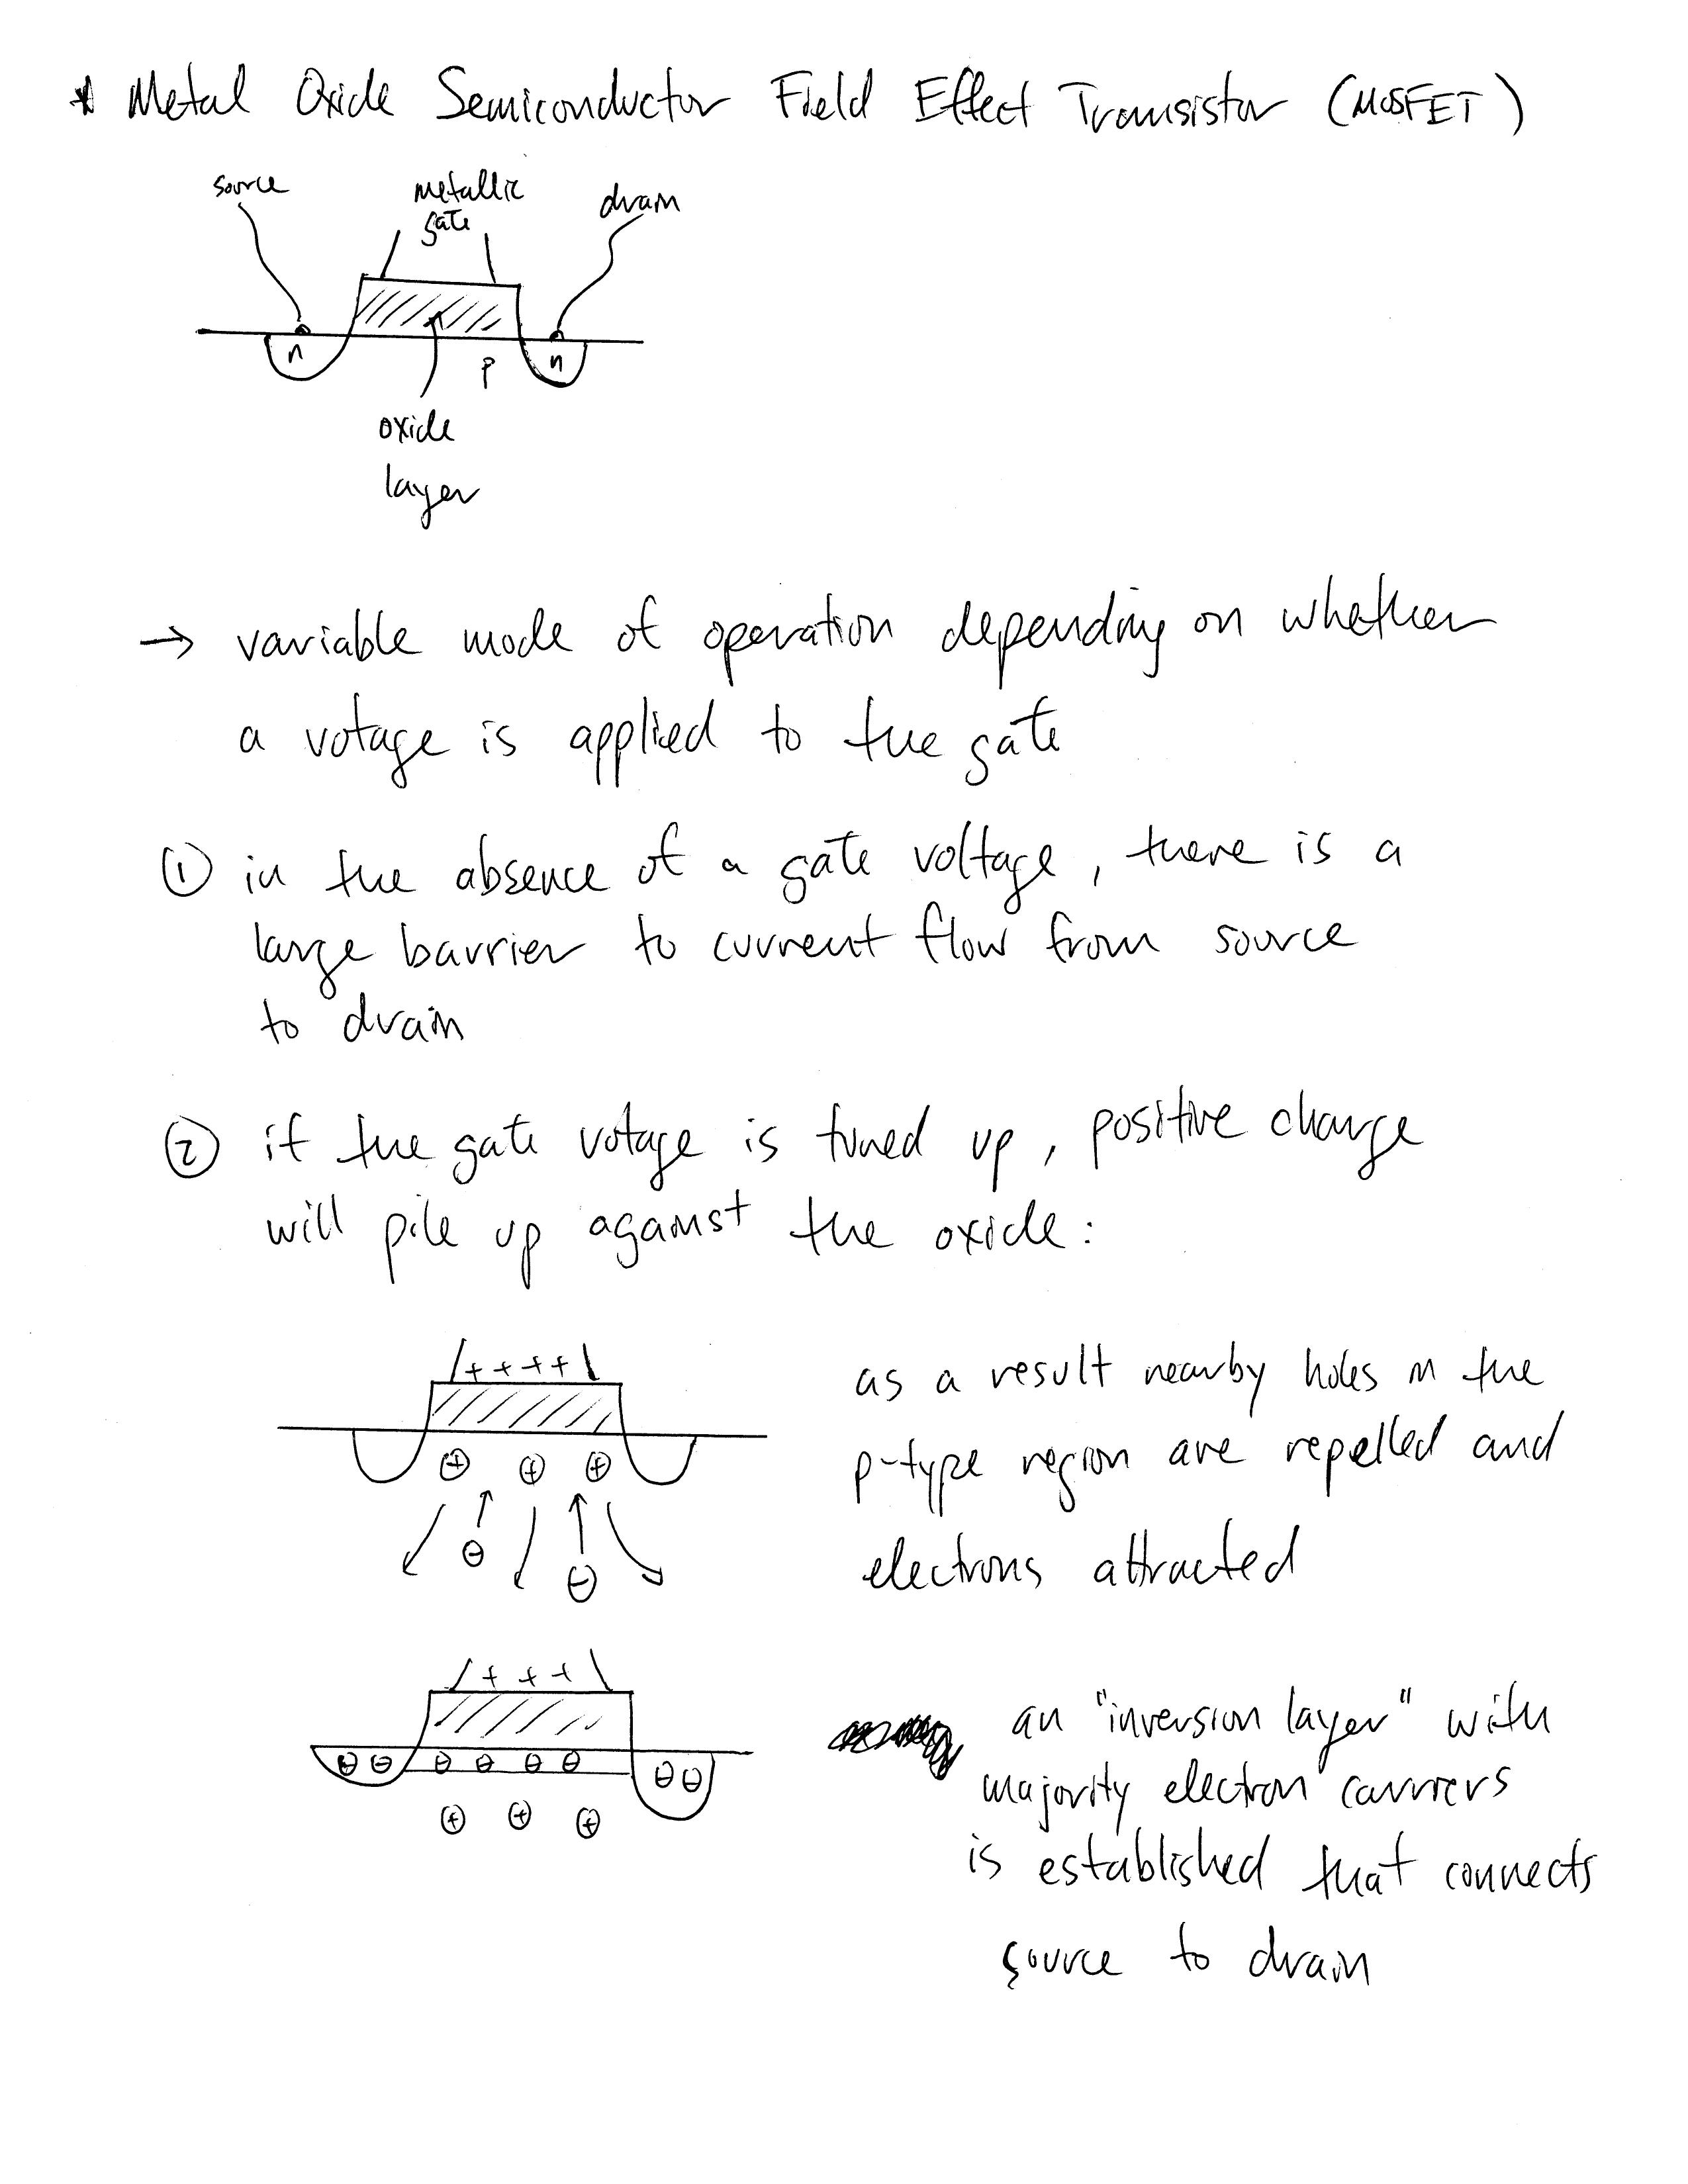 * Metal Oxide Semiconductor Field Effect Transistor (MOSFET)
source
metallic
gate
drain
n
p
n
oxide
layer
→ variable mode of operation depending on whether
a votage is applied to the gate
① in the absence of a gate voltage, there is a
large barrier to current flow from source
to drain
② if the gate votage is tuned up, positive charge
will pile up against the oxide:
+ + + +
as a result nearby holes in the
p-type region are repelled and
electrons attracted
⊕ ⊕ ⊕
⊖ ⊖
+ + +
an "inversion layer" with
majority electron carriers
is established that connects
source to drain
⊖ ⊖ ⊖ ⊖ ⊖ ⊖ ⊖ ⊖
⊕ ⊕ ⊕